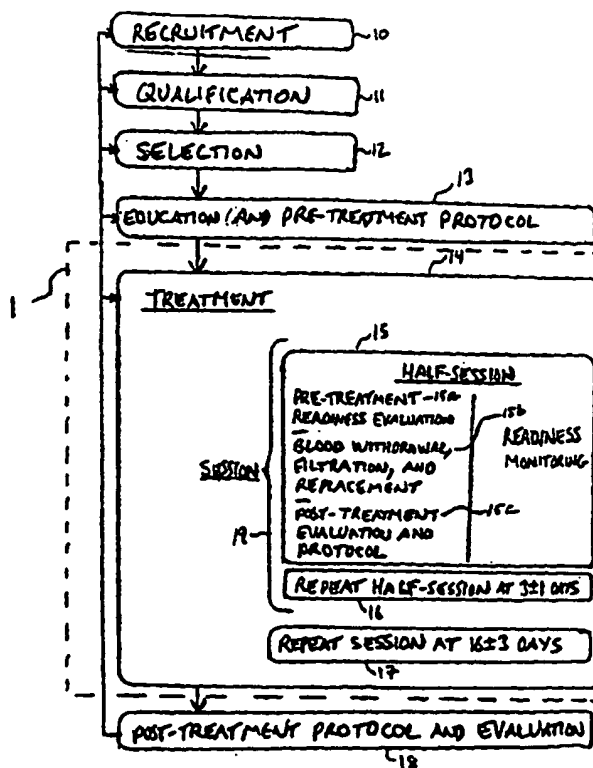 RECRUITMENT 10
QUALIFICATION 11
SELECTION 12
13
EDUCATION/AND PRE-TREATMENT PROTOCOL
14
1
TREATMENT
15
HALF-SESSION
PRE-TREATMENT 15a
READINESS EVALUATION
15b
BLOOD WITHDRAWAL,
FILTRATION, AND
REPLACEMENT
READINESS
MONITORING
SESSION
POST-TREATMENT 15c
EVALUATION AND
PROTOCOL
19
REPEAT HALF-SESSION AT 3±1 DAYS
16
REPEAT SESSION AT 16±3 DAYS
17
POST-TREATMENT PROTOCOL AND EVALUATION
18